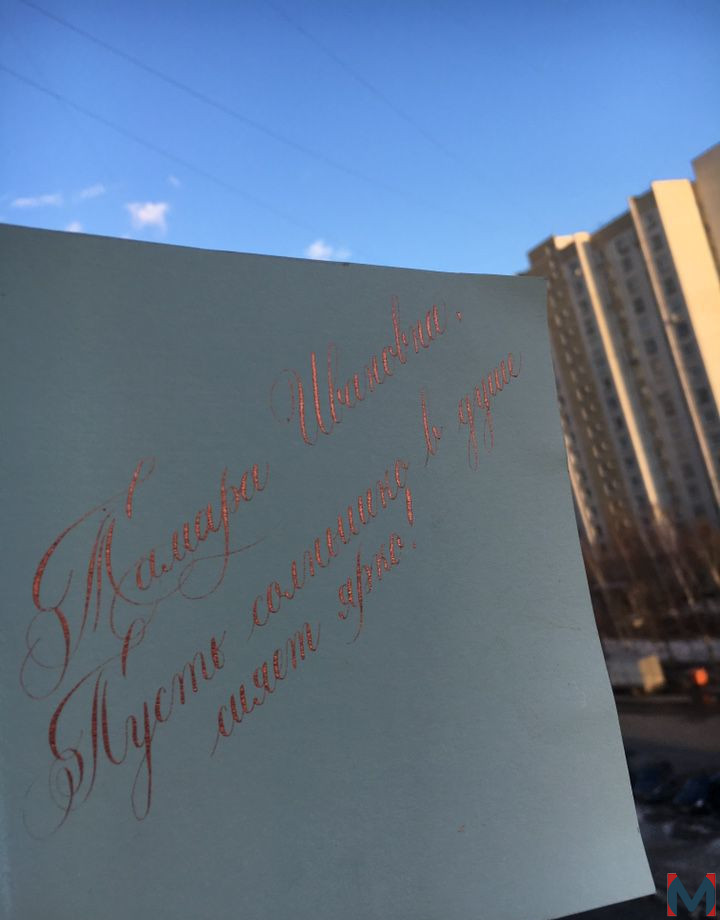 Тамара Ивановна,
Пусть солнышко в душе
сияет ярко!
M